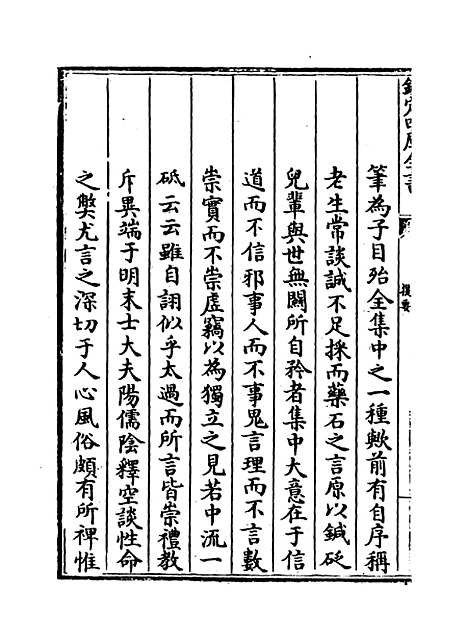 欽定四庫全書
提要
筆為子目殆全集中之一種歟前有自序稱
老生常談誠不足採而藥石之言原以鍼砭
兒輩與世無關所自矜者集中大意在于信
道而不信邪事人而不事鬼言理而不言數
崇實而不崇虛竊以為獨立之見若中流一
砥云云雖自詡似乎太過而所言皆崇禮教
斥異端于明末士大夫陽儒陰釋空談性命
之弊尤言之深切于人心風俗頗有所裨惟